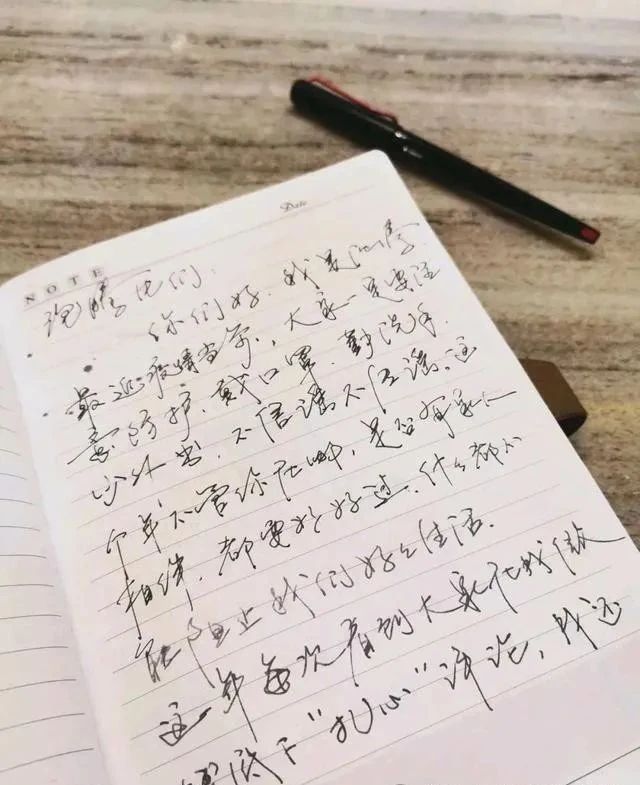 Date
NOTE
腾 们:
你们好. 我是
最近疫情当前, 大家一定要注
意防护, 戴口罩, 勤洗手.
少外出, 不信谣不传谣. 这
个年不管你在哪, 是否有家人
相伴, 都要好好过, 什么都不
能阻止我们好好生活.
这年每次看到大家在我微
博底下"扎心"评论, 我还